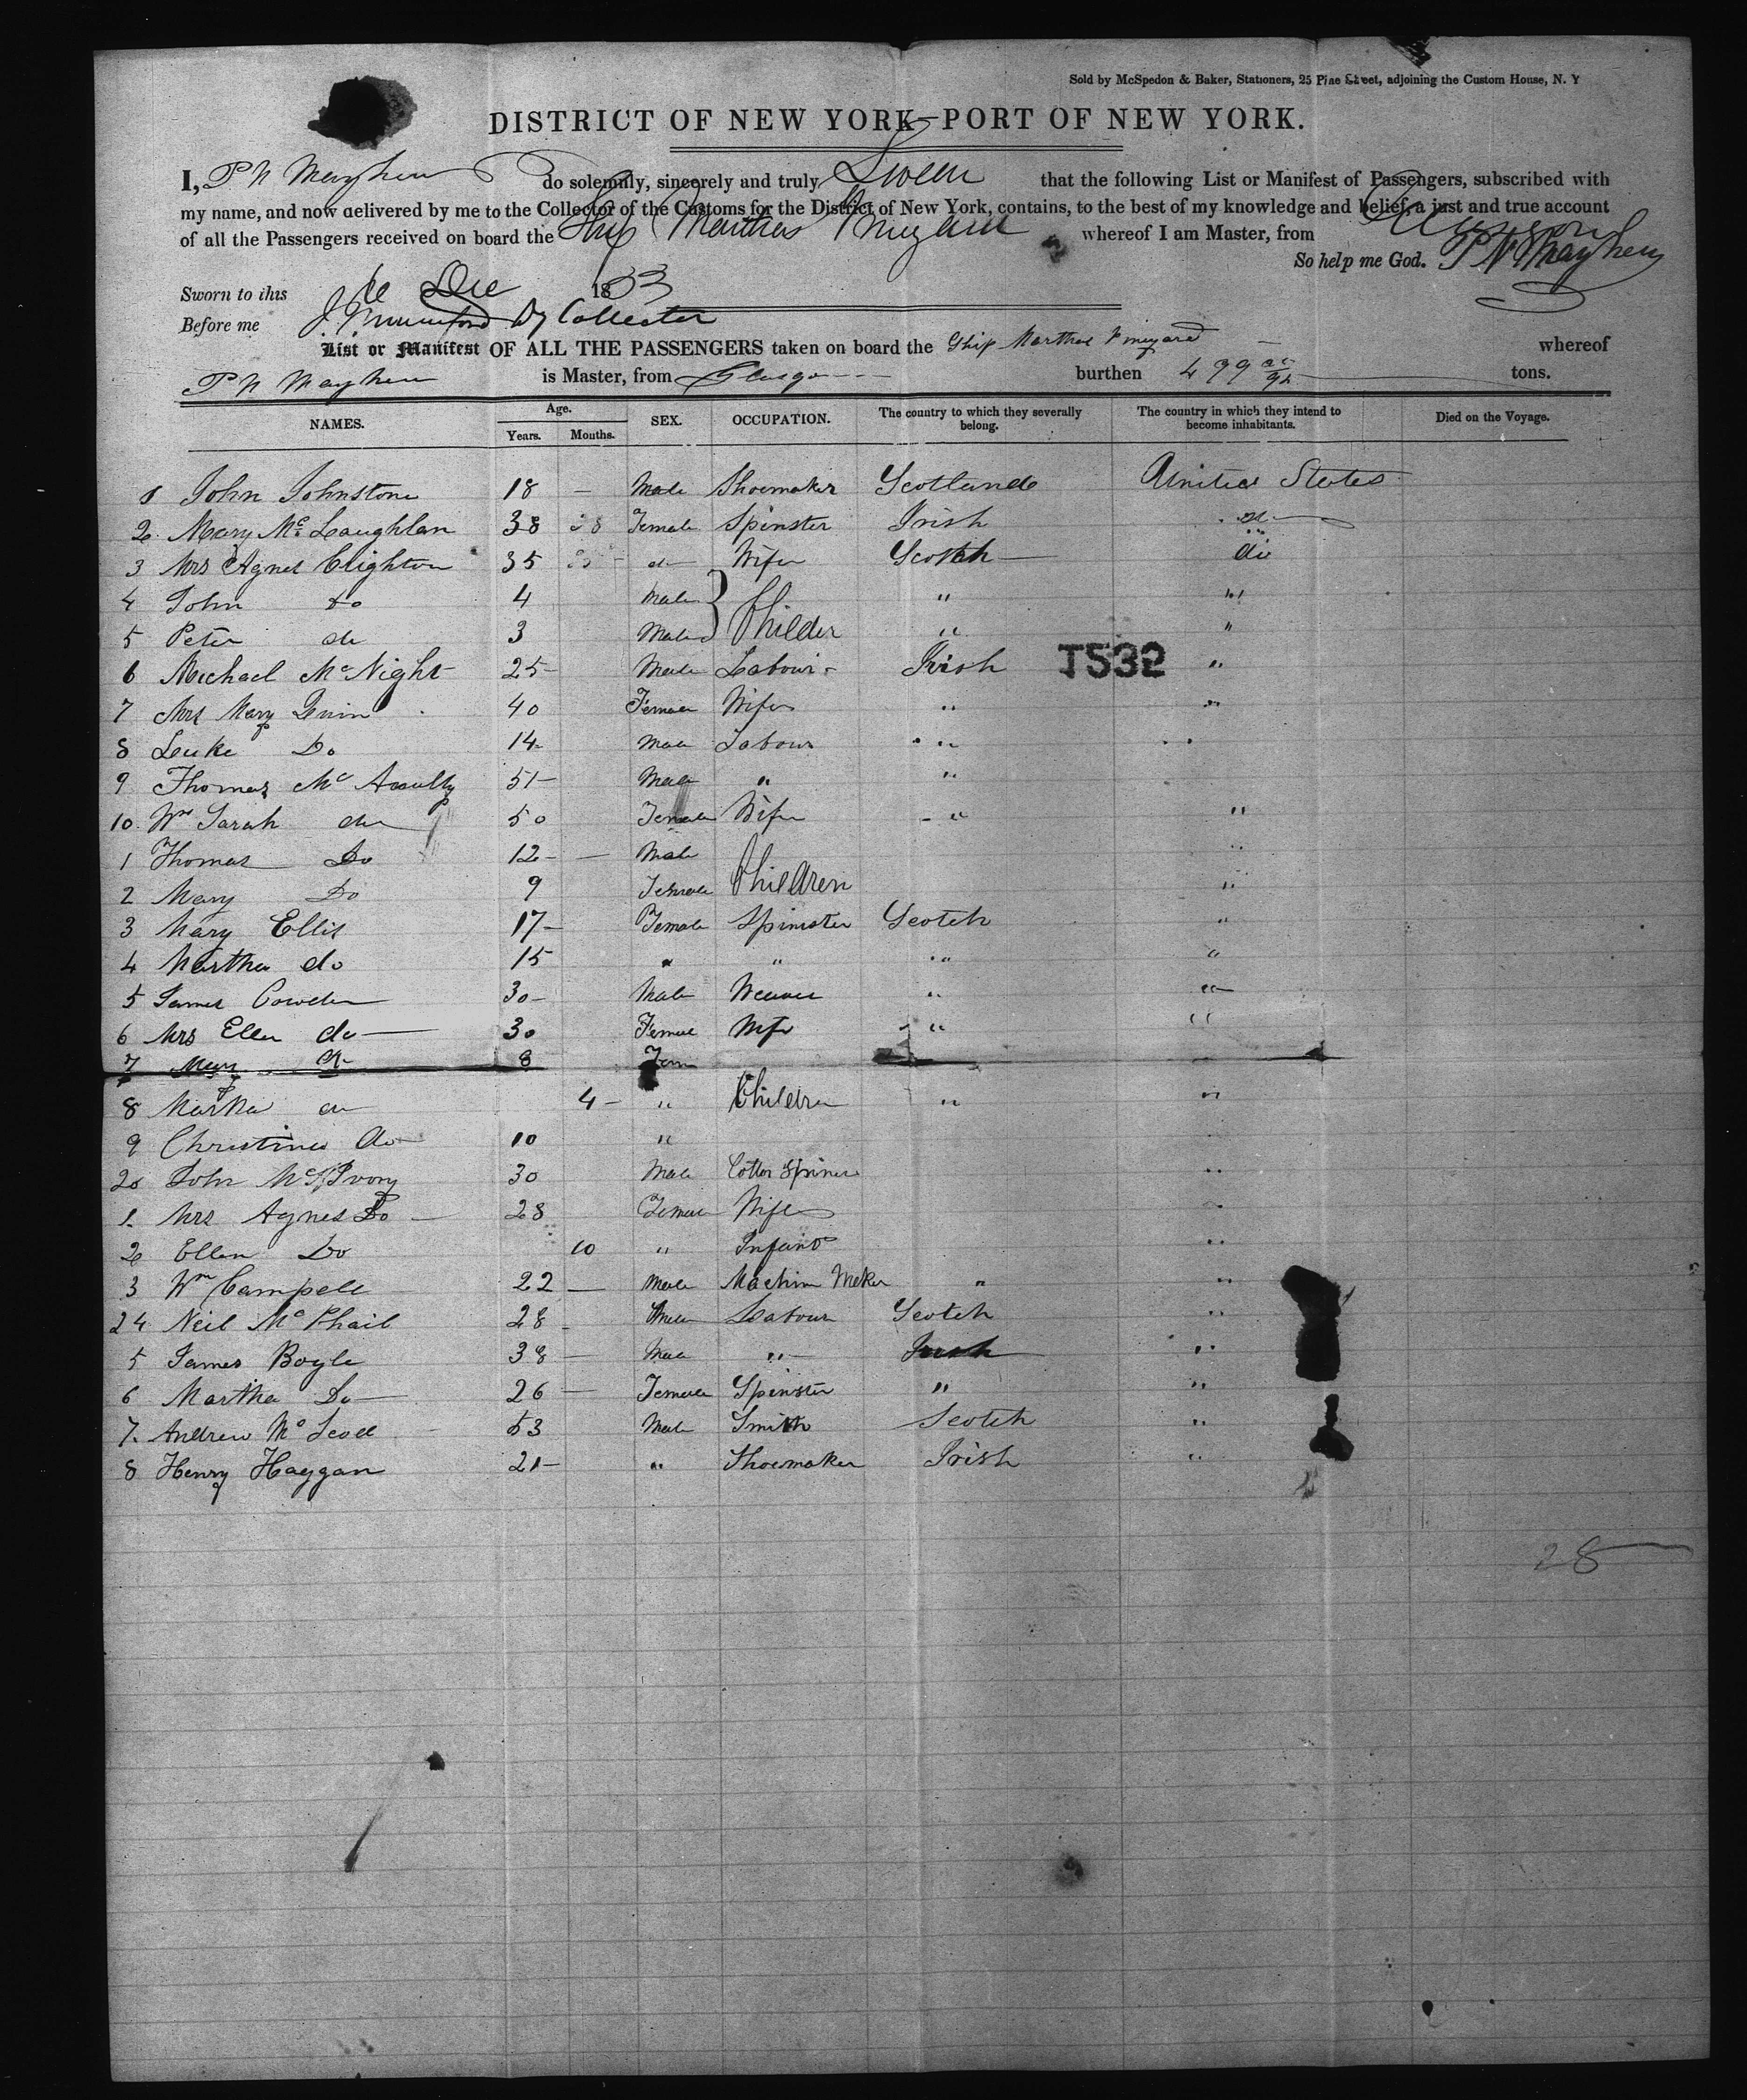 Sold by McSpedon & Baker, Stationers, 25 Pine Street, adjoining the Custom House, N. Y
DISTRICT OF NEW YORK—PORT OF NEW YORK.
I, P N Mayhew do solemnly, sincerely and truly Swear that the following List or Manifest of Passengers, subscribed with
my name, and now delivered by me to the Collector of the Customs for the District of New York, contains, to the best of my knowledge and belief, a just and true account
of all the Passengers received on board the Ship Marthas Vineyard whereof I am Master, from Glasgow
So help me God. P N Mayhew
Sworn to this Dec 1853
Before me Dy Collector
List or Manifest OF ALL THE PASSENGERS taken on board the Ship Marthas Vineyard whereof
P N Mayhew is Master, from Glasgow burthen 499 tons.
NAMES. Age. Years. Months. SEX. OCCUPATION. The country to which they severally belong. The country in which they intend to become inhabitants. Died on the Voyage.
1 John Johnstone 18 — Male Shoemaker Scotland United States
2 Mary Mc Laughlan 38 28 Female Spinster Irish do
3 Mrs Agnes Crighton 35 do Wife Scotch do
4 John Do 4 Male " "
5 Peter do 3 Male Childer " "
6 Michael Mc Night 25 Male Labour Irish T532 "
7 Mrs Mary Quin 40 Female Wife " "
8 Luke Do 14 Male Labour " "
9 Thomas Mc 51 Male " "
10 Sarah do 50 Female Wife " "
1 Thomas Do 12 — Male "
2 Mary Do 9 Female Children "
3 Mary Ellis 17 Female Spinster Scotch "
4 Martha do 15 " " " "
5 James Cowden 30 Male Weaver " "
6 Mrs Ellen do 30 Female Wife " "
7 Mary do 8 Fem
8 Martha do 4 " Children " "
9 Christina do 10 " "
20 John Mc Ivory 30 Male Cotton Spinner "
1 Mrs Agnes Do 28 Female Wife "
2 Ellen Do 10 " Infant "
3 Wm Campell 22 — Male Machin Meker " "
24 Neil Mc Phail 28 Male Labour Scotch "
5 James Boyle 38 — Male " Irish "
6 Martha Do 26 — Female Spinster " "
7 Andrew Mc Leod 53 Male Smith Scotch "
8 Henry Haggan 21 " Shoemaker Irish "
28